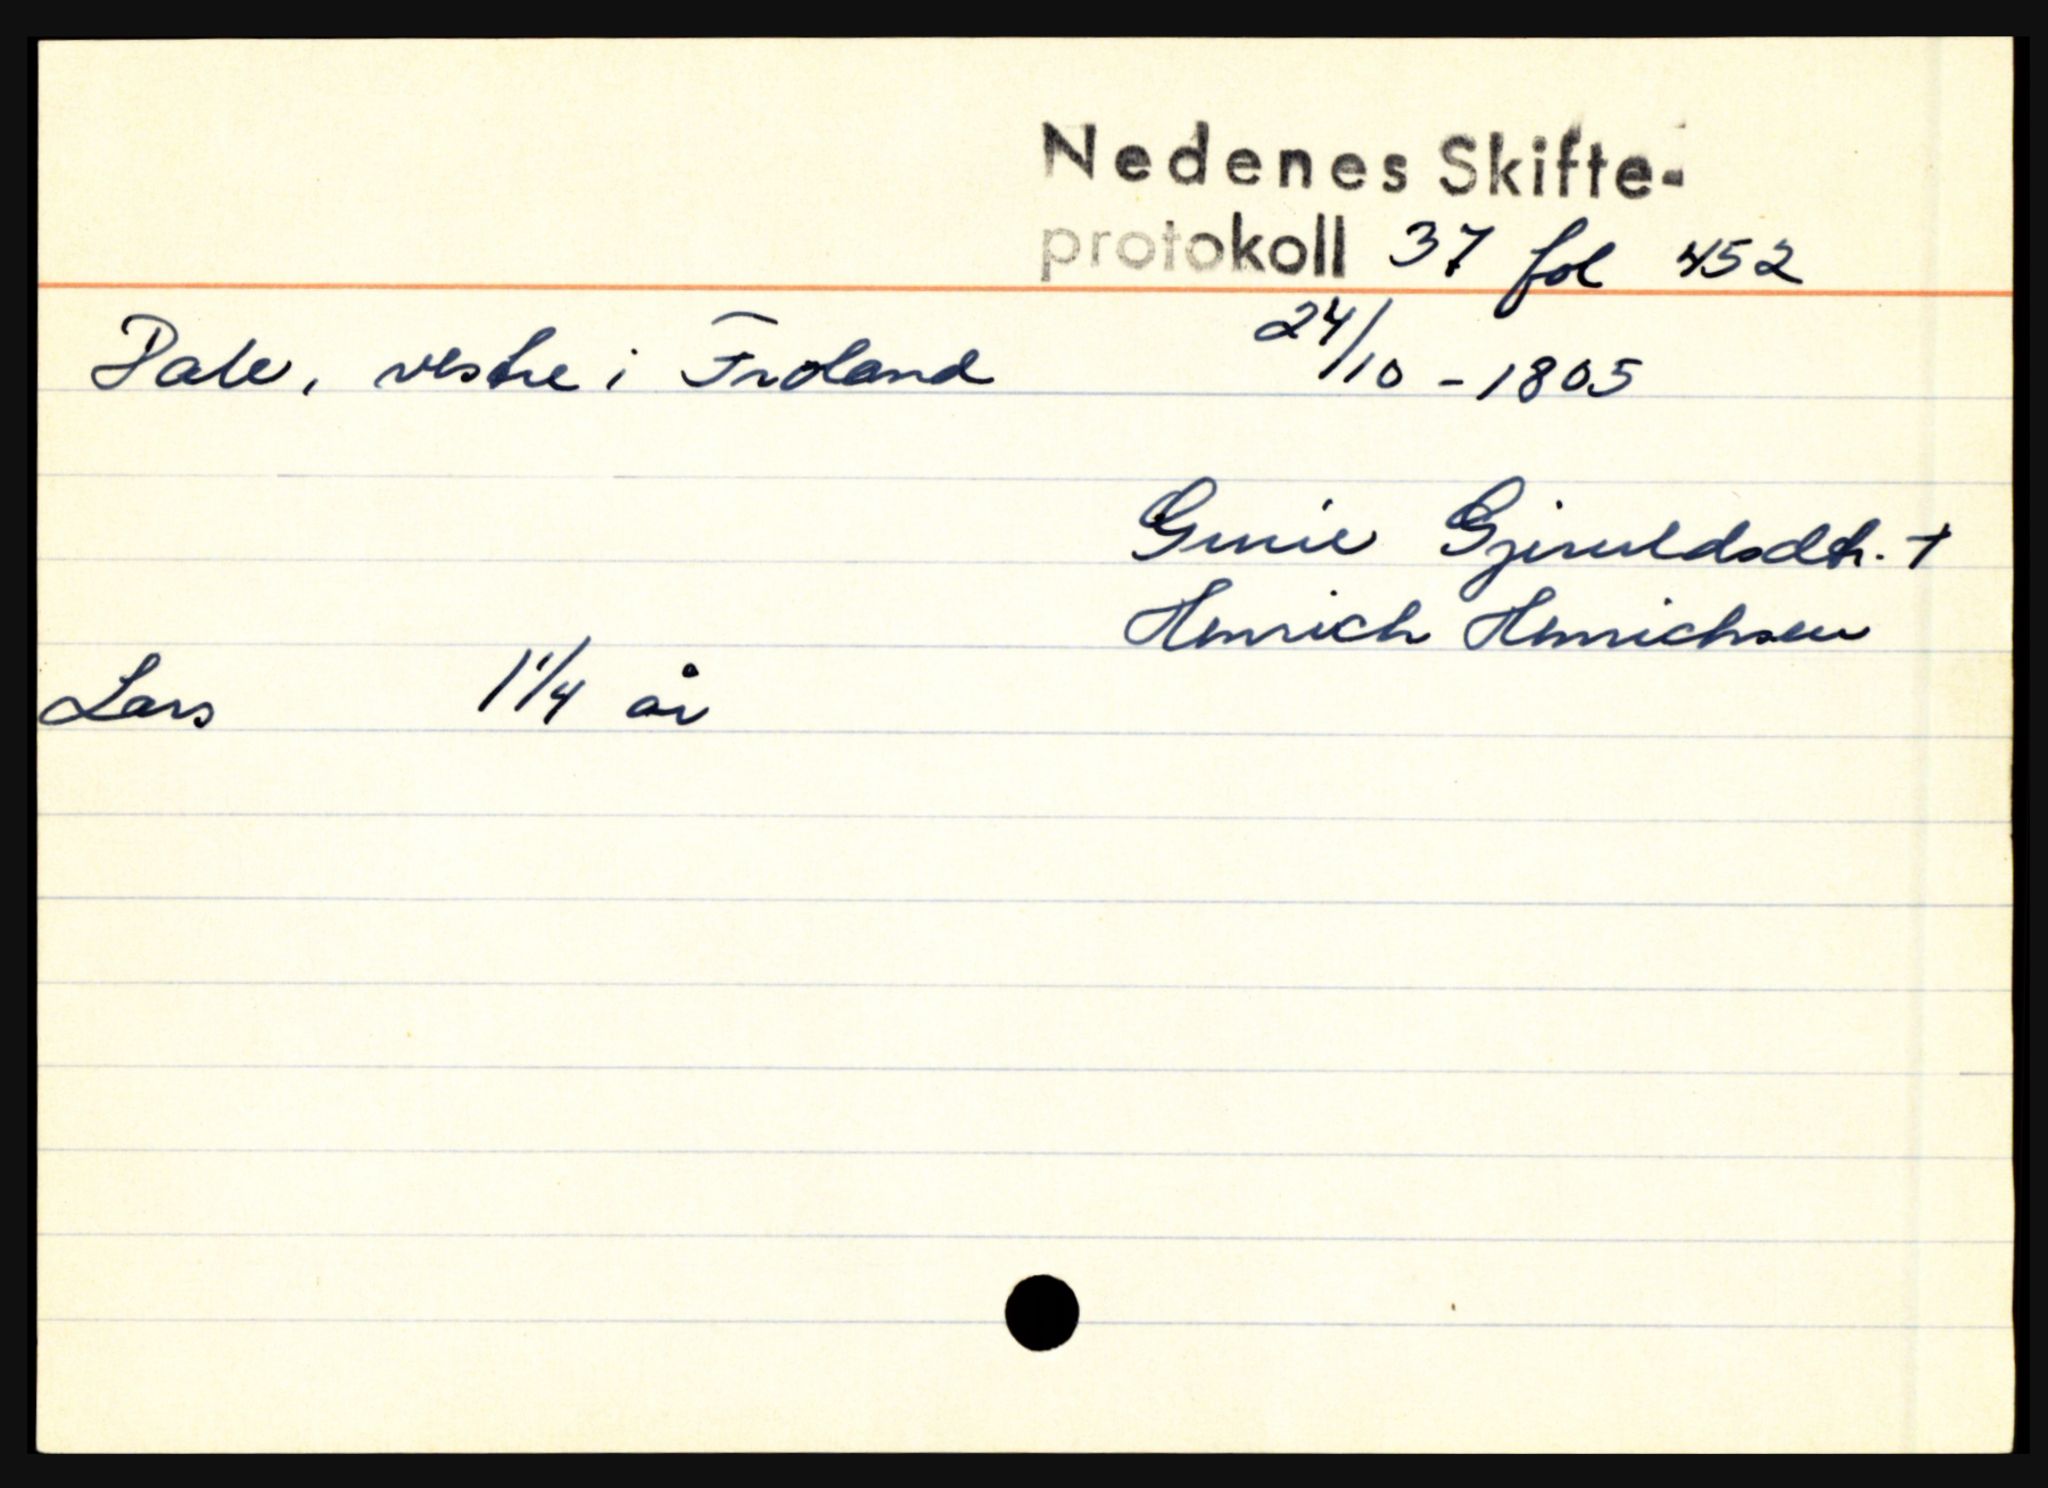 Nedenes Skifte-
protokoll 37 fol 452
Dale, vestre i Froland 24/10 - 1805
Gunie Gjeruldsdtr. +
Henrich Henrichsen
Lars 1 1/4 år